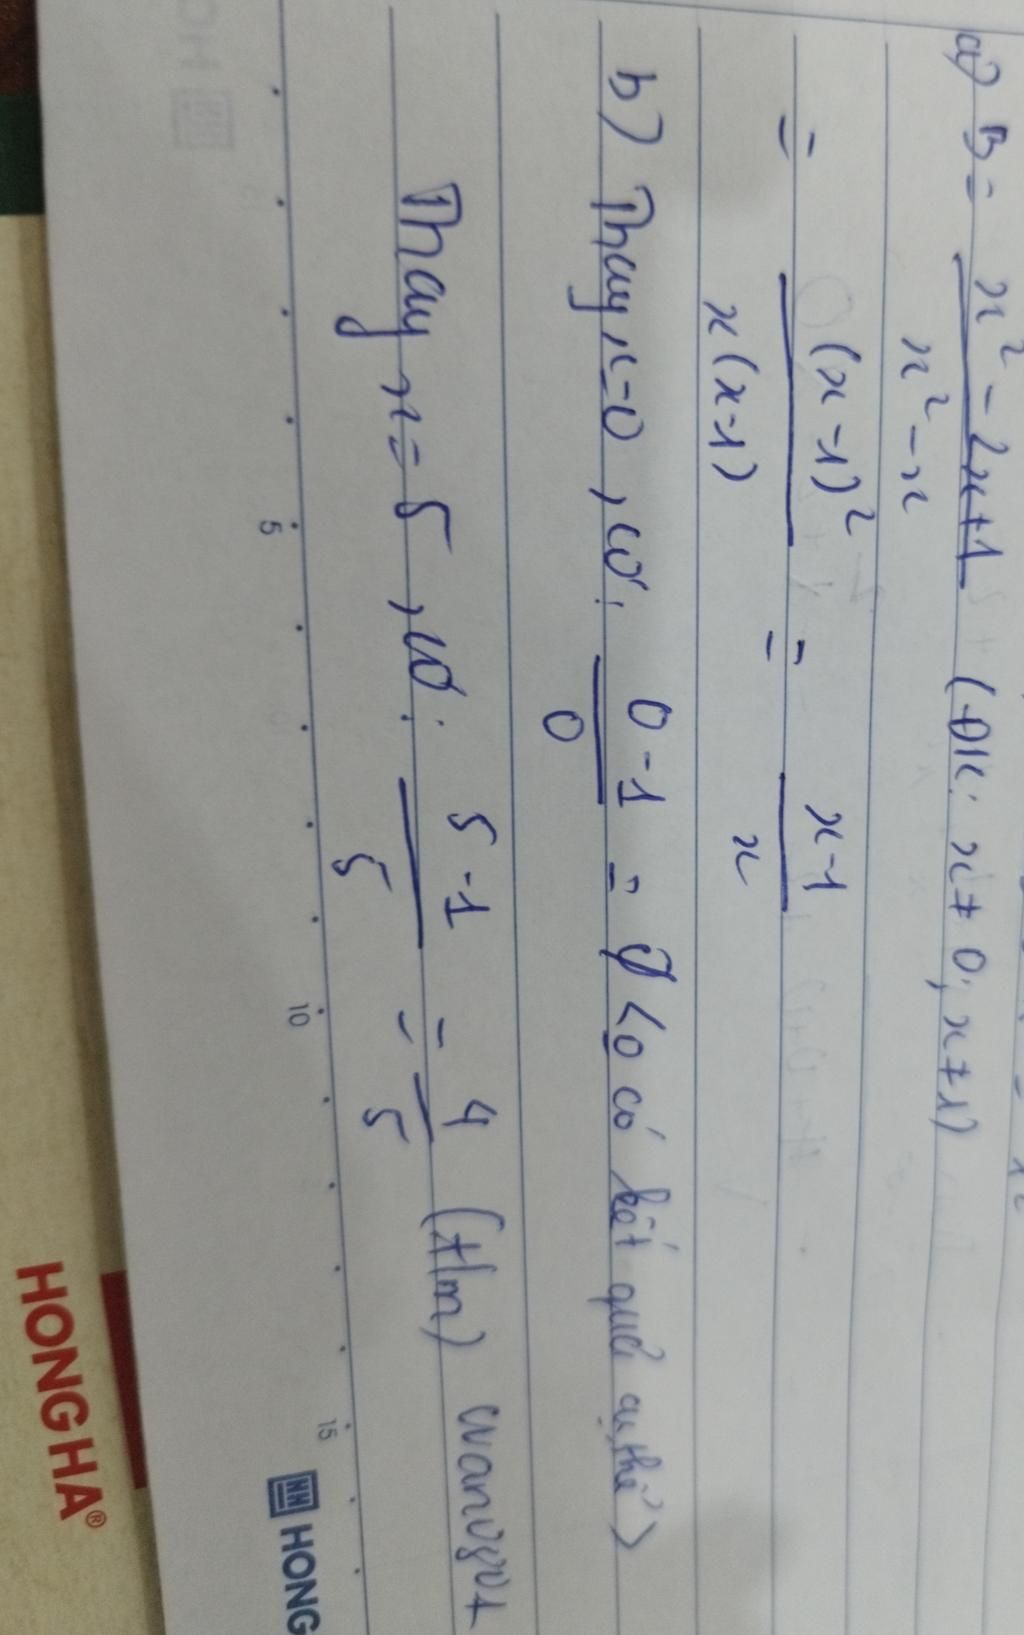 a) B = x² - 2x + 1 / x² - x (ĐK: x ≠ 0; x ≠ 1)
= (x - 1)² / x(x - 1) = x - 1 / x
b) Thay x = 0, có: 0 - 1 / 0 = 0 <0 có kết quả cụ thể>
Thay x = 5, có: 5 - 1 / 5 = 4 / 5 (t/m)
5
10
15
HONG
HONG HA®